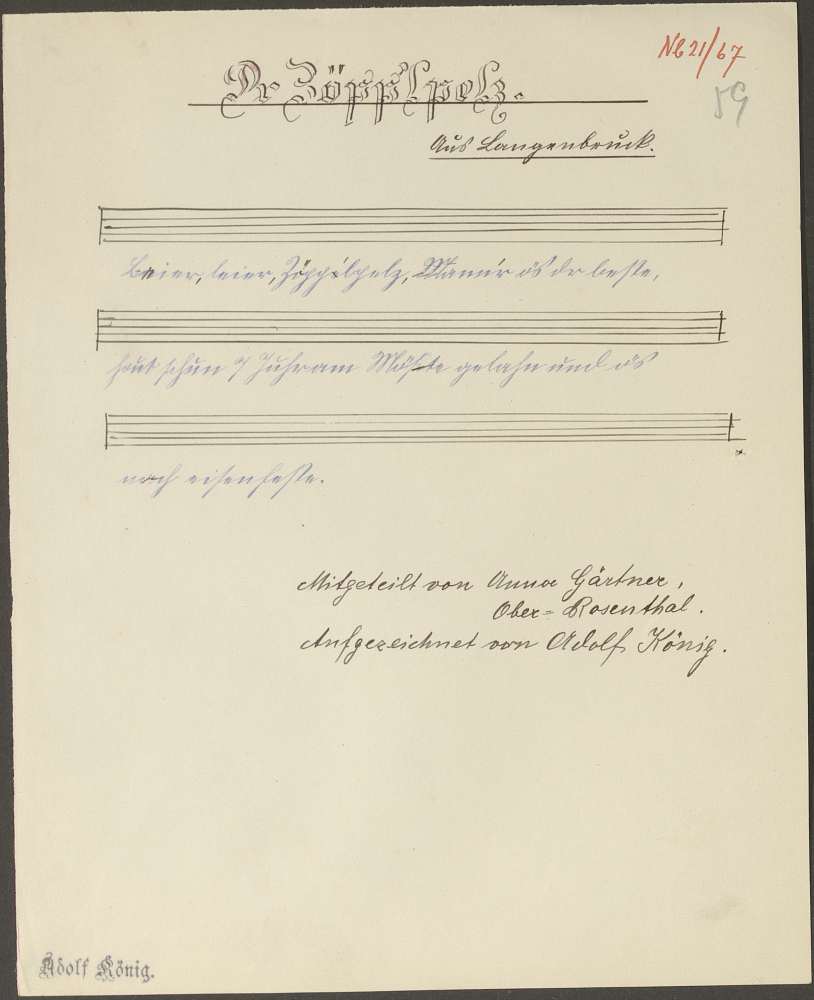 Nb 21/67
59
Dr Zöpp'lpelz.
Aus Langenbruck.
Leier, leier, Zöpp'lpelz, Mamm'r ös dr beste,
schun 7 Juhr am gelahn und ös
noch eisenfeste.
Mitgeteilt von Anna Gärtner,
Ober-Rosenthal.
Aufgezeichnet von Adolf König.
Adolf König.